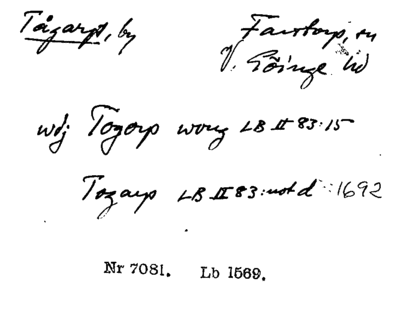 Tågarpt, by Farstorp, sn
V. Göinge hd
wdj Togorp wong LB II 83:15
Togarp LB II 83:not d 1692
Nr 7081. Lb 1569.